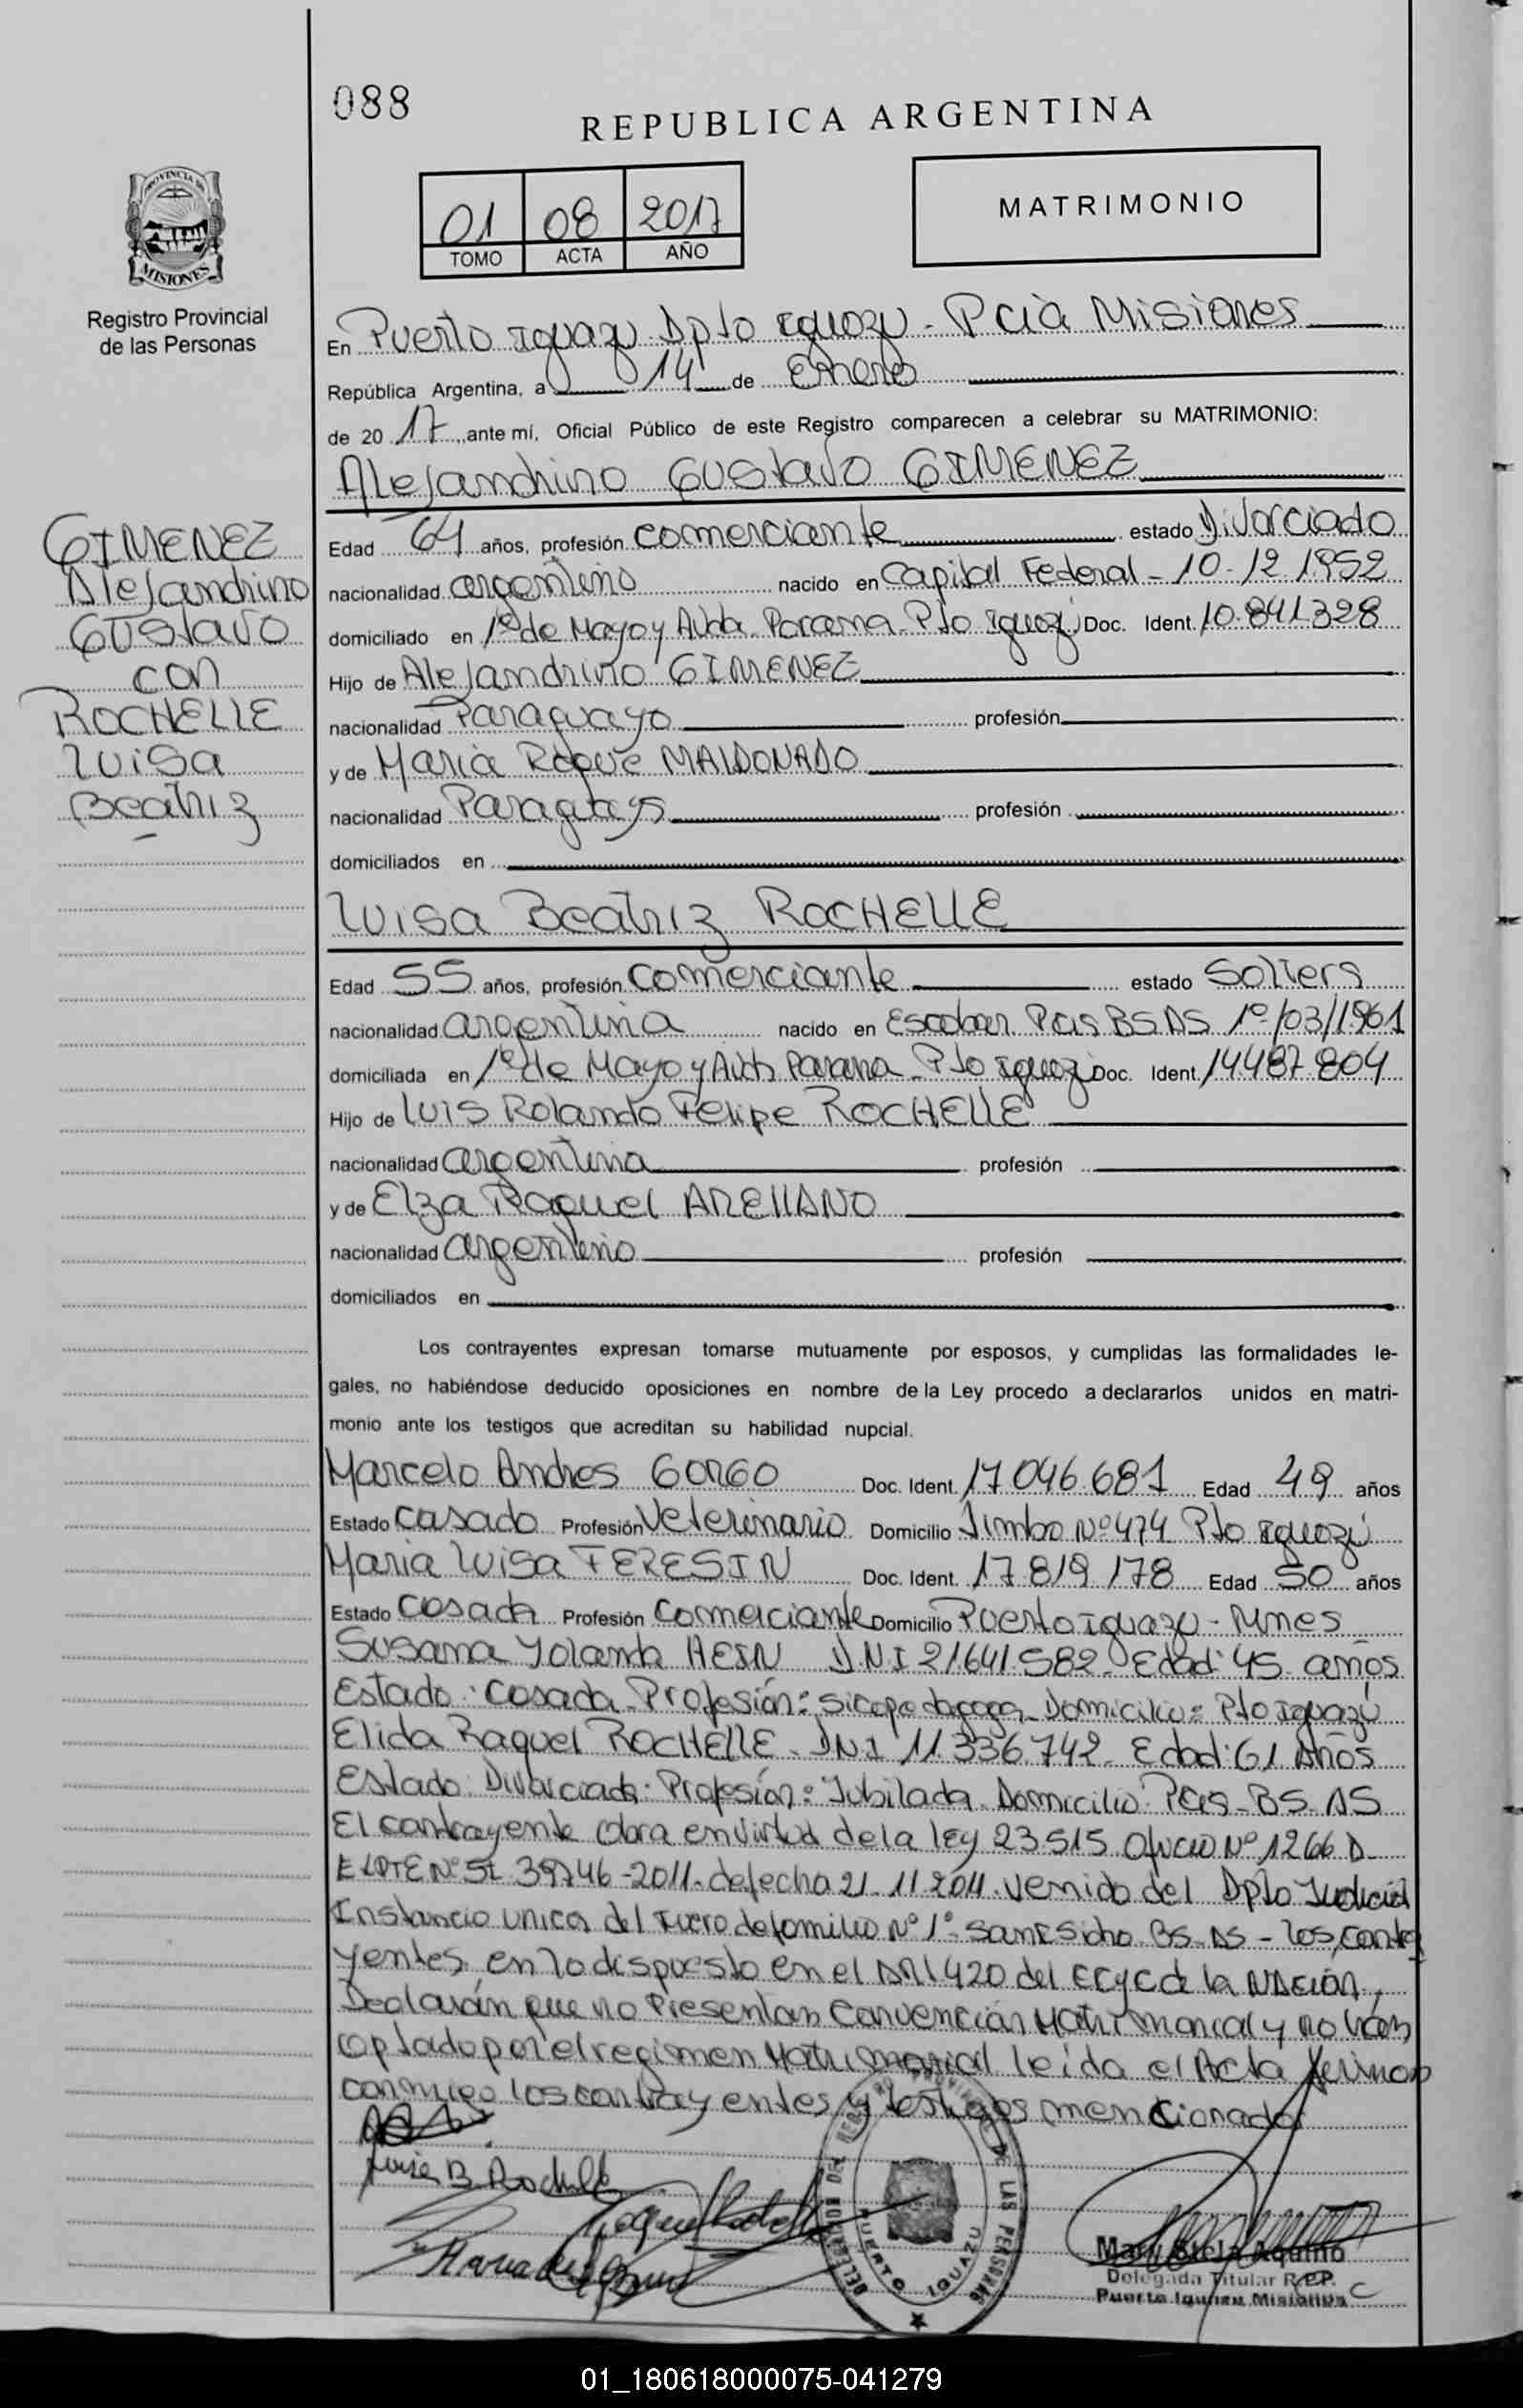 088
REPUBLICA ARGENTINA
01 08 2017
TOMO ACTA AÑO
MATRIMONIO
PROVINCIA DE
MISIONES
Registro Provincial
de las Personas
En Puerto Iguazu Dpto Iguazu - Pcia Misiones
República Argentina, a 14 de Enero
de 2017, ante mí, Oficial Público de este Registro comparecen a celebrar su MATRIMONIO:
Alejandrino Gustavo GIMENEZ
GIMENEZ
Alejandrino
Gustavo
con
ROCHELLE
Luisa
Beatriz
Edad 64 años, profesión comerciante estado Divorciado
nacionalidad argentino nacido en Capital Federal - 10-12 1952
domiciliado en 1º de Mayo y Avda Parana Pto Iguazú Doc. Ident. 10.841.328
Hijo de Alejandrino GIMENEZ
nacionalidad Paraguayo profesión
y de Maria Roque MALDONADO
nacionalidad profesión
domiciliados en
Luisa Beatriz ROCHELLE
Edad 55 años, profesión comerciante estado Soltera
nacionalidad argentina nacido en Escobar Pcia BS AS 1º/03/1961
domiciliada en 1º de Mayo y Avda Parana Pto Iguazú Doc. Ident. 14487.804
Hijo de Luis Rolando Felipe ROCHELLE
nacionalidad argentina profesión
y de Elza Raquel ARELLANO
nacionalidad argentino profesión
domiciliados en
Los contrayentes expresan tomarse mutuamente por esposos, y cumplidas las formalidades le-
gales, no habiéndose deducido oposiciones en nombre de la Ley procedo a declararlos unidos en matri-
monio ante los testigos que acreditan su habilidad nupcial.
Marcelo Andres GORGO Doc. Ident. 17.046.681 Edad 49 años
Estado casado Profesión Veterinario Domicilio Timbo Nº 474 Pto Iguazú
Maria Luisa FERESIN Doc. Ident. 17.819.178 Edad 50 años
Estado Casada Profesión Comerciante Domicilio Puerto Iguazu - Mnes
Susana Yolanda HEIN D.N.I 21.641.582 - Edad: 45 años
Estado: Casada - Profesión: Sicopedagoga - Domicilio: Pto Iguazú
Elida Raquel ROCHELLE - DNI 11.336.742 - Edad: 61 Años
Estado: Divorciada - Profesión: Jubilada - Domicilio Pcia - BS. AS
El contrayente obra en virtud de la ley 23.515 Oficio Nº 1266 D.
EXPTE Nº SI 39746 - 2011 - de fecha 21. 11 2011. venido del Dpto Judicial
Instancia unica del Fuero de familia Nº 1º San Isidro BS. AS - los contra
yentes, en lo dispuesto en el Art 420 del CCyC de la NACION,
Declarán que no Presentan Convención Matrimonial y no han
optado por el regimen Matrimonial leida el Acta firman
conmigo los contrayentes y testigos mencionados
Luisa B. Rochelle
DELEGACION DEL REGISTRO PROVINCIAL DE LAS PERSONAS
PUERTO IGUAZU
Mary Stela Aquino
Delegada Titular R.P.P.
Puerto Iguazu Misiones
01_180618000075-041279